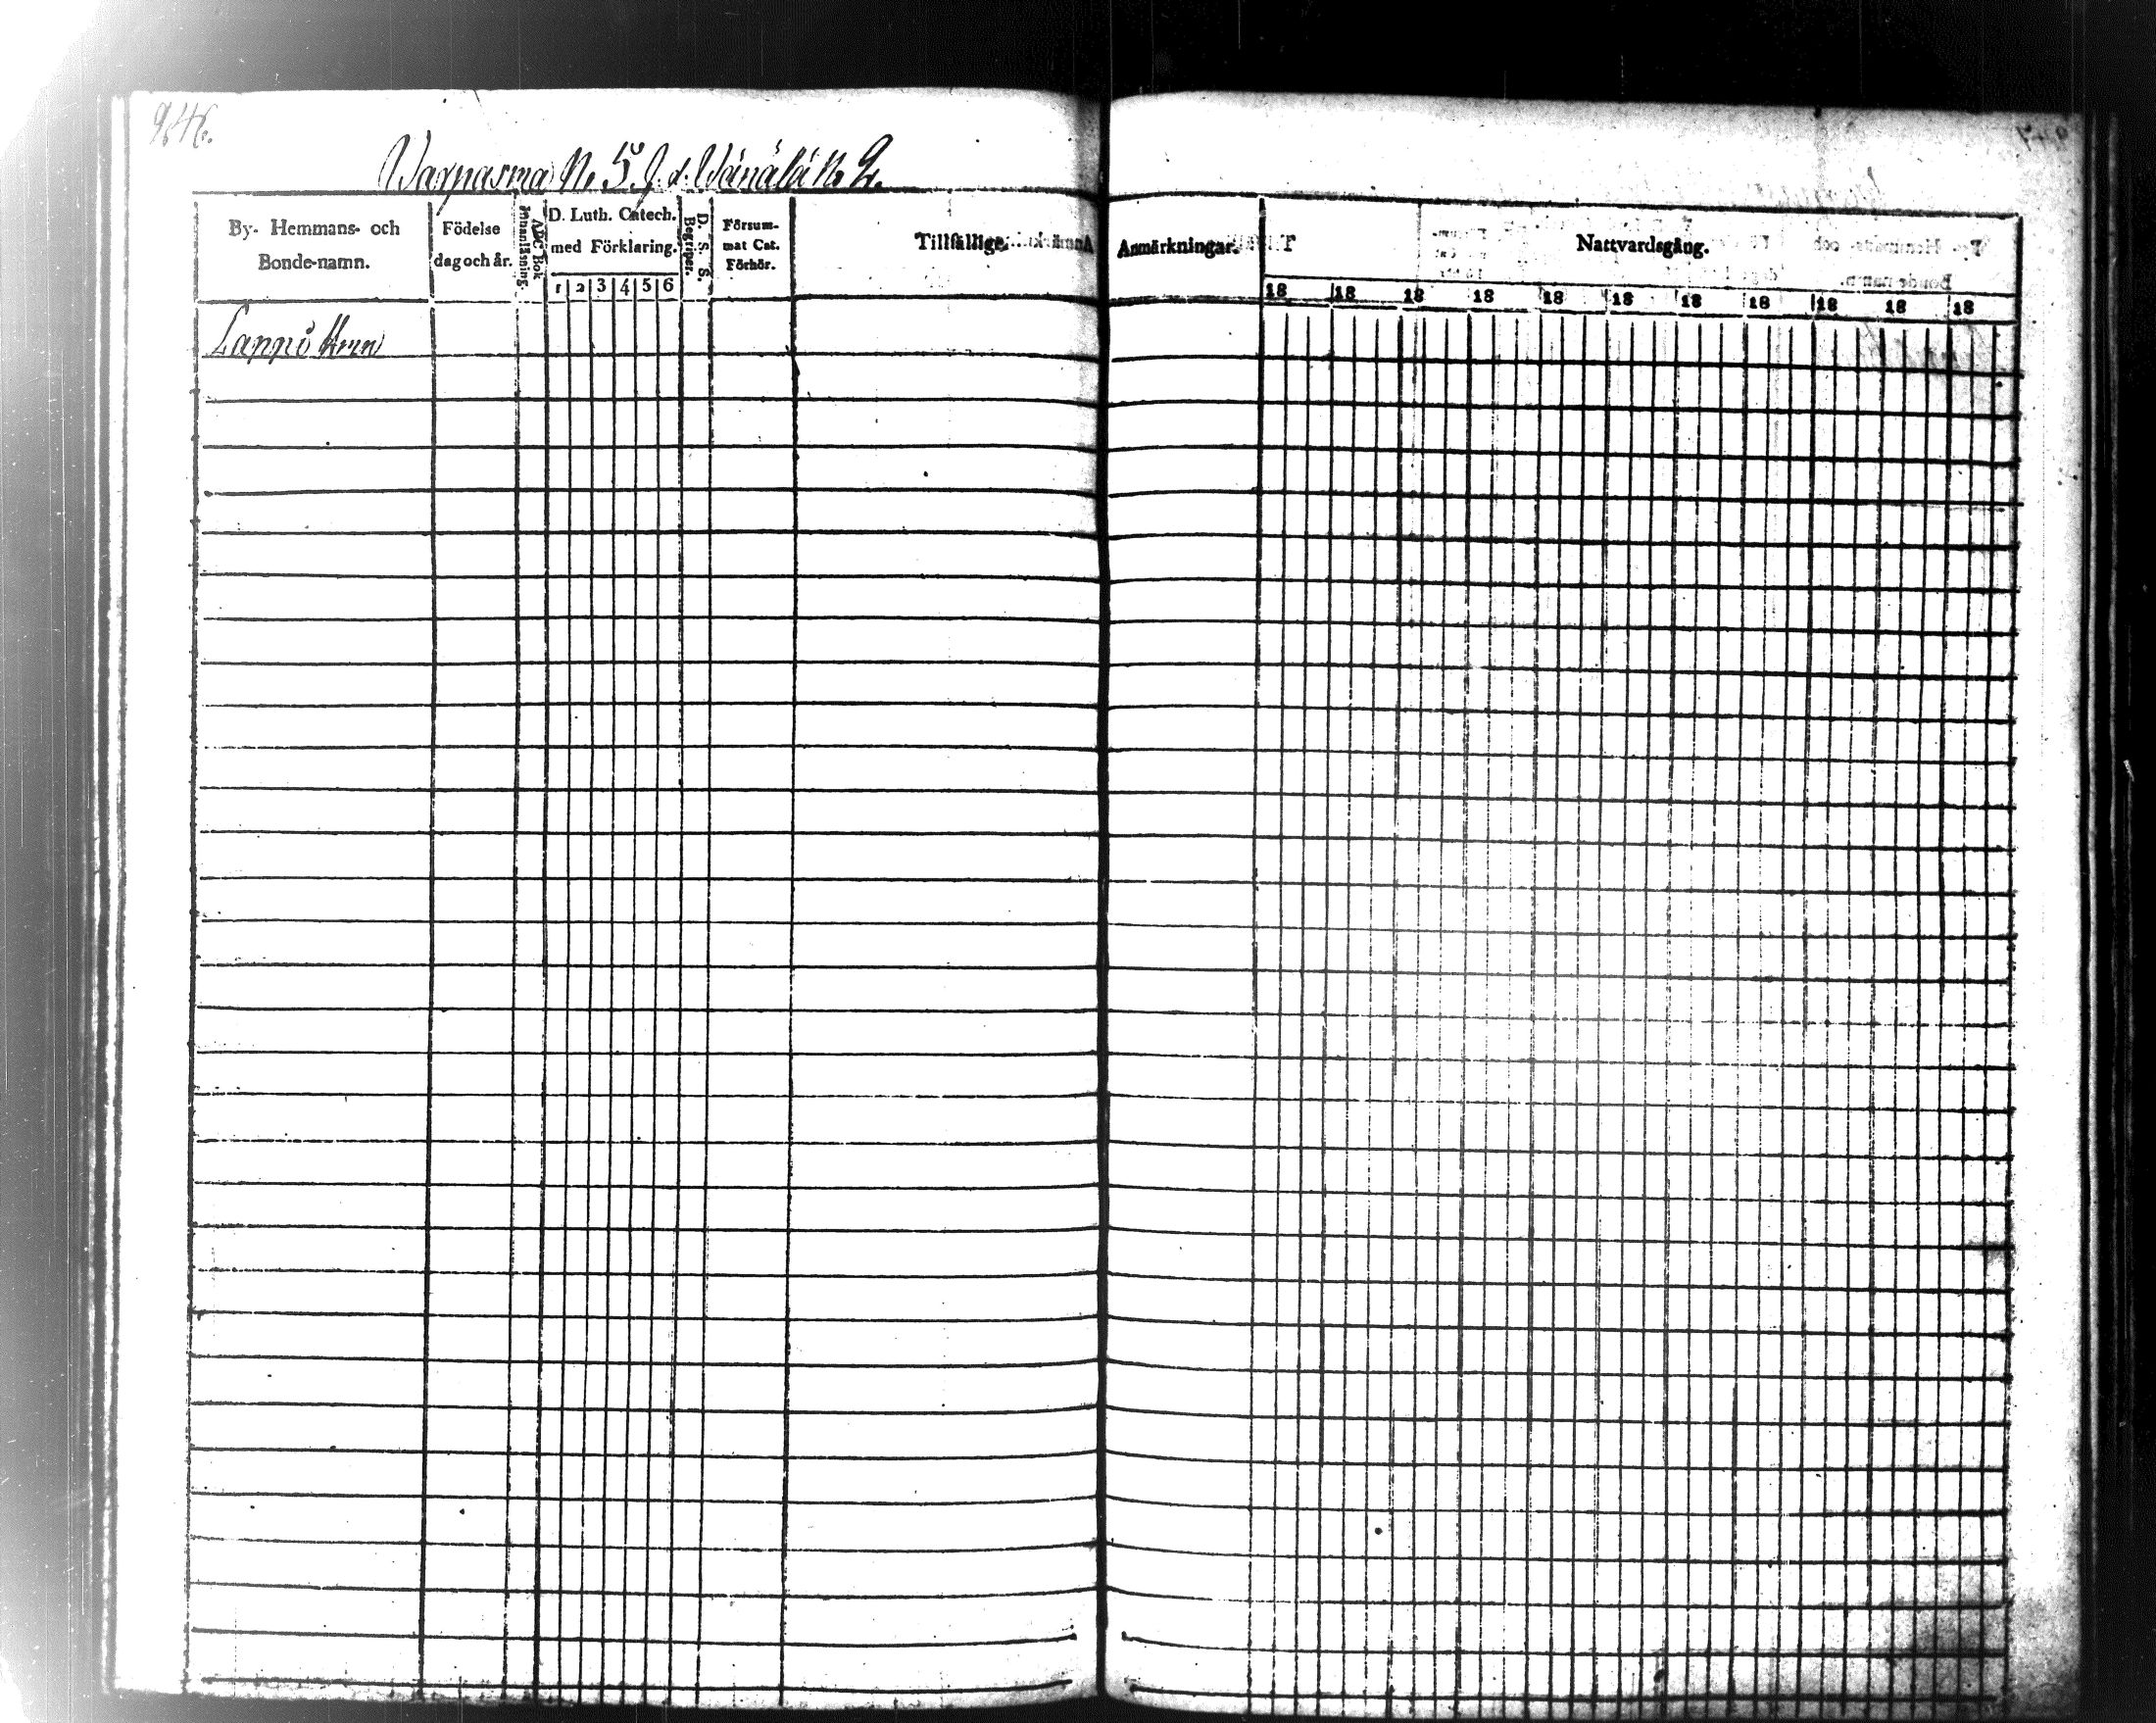 946.
Warpasma N. 5. J. d. Wänälä N. 2.
By- Hemmans- och Bonde-namn.
Födelse dag och år.
ABC Bok Innanläsning.
D. Luth. Catech. med Förklaring.
1 2 3 4 5 6
D. S. S. Begriper.
Försum-
mat Cat.
Förhör.
Tillfällige
Anmärkningar.
Nattvardsgång.
18 18 18 18 18 18 18 18 18 18 18
Lappi Hmn